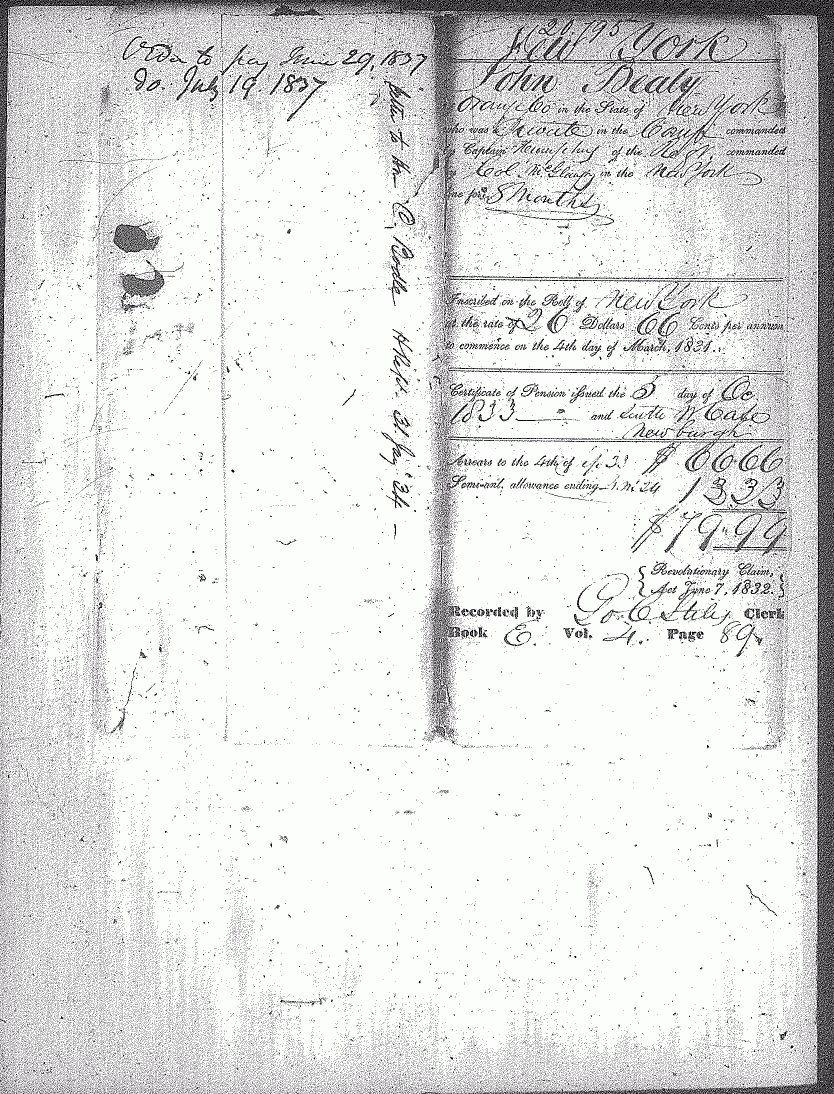 Order to pay June 29, 1837
do. July 19. 1837
letter to Hn C. Bodle H Reps. 31 Jay '34 —
20.795
New York
John Bealy
Orange Co in the State of New York
who was a Private in the Comp commanded
by Captain Humphrey of the Regt commanded
by Col. in the New York
line for 8 months
Inscribed on the Roll of New York
at the rate of 26 Dollars 66 Cents per annum
to commence on the 4th day of March, 1831.
Certificate of Pension issued the 5 day of Oc
1833 — and
Newburgh
Arrears to the 4th of 33 $ 66 66
Semi-anl. allowance ending 13.33
$ 79.99
Revolutionary Claim,
Act June 7, 1832.
Recorded by Clerk
Book E. Vol. 4. Page 89